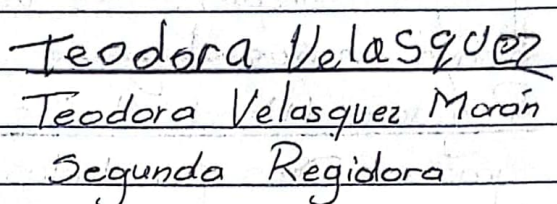 Teodora Velasquez
Teodora Velasquez Morán
Segunda Regidora